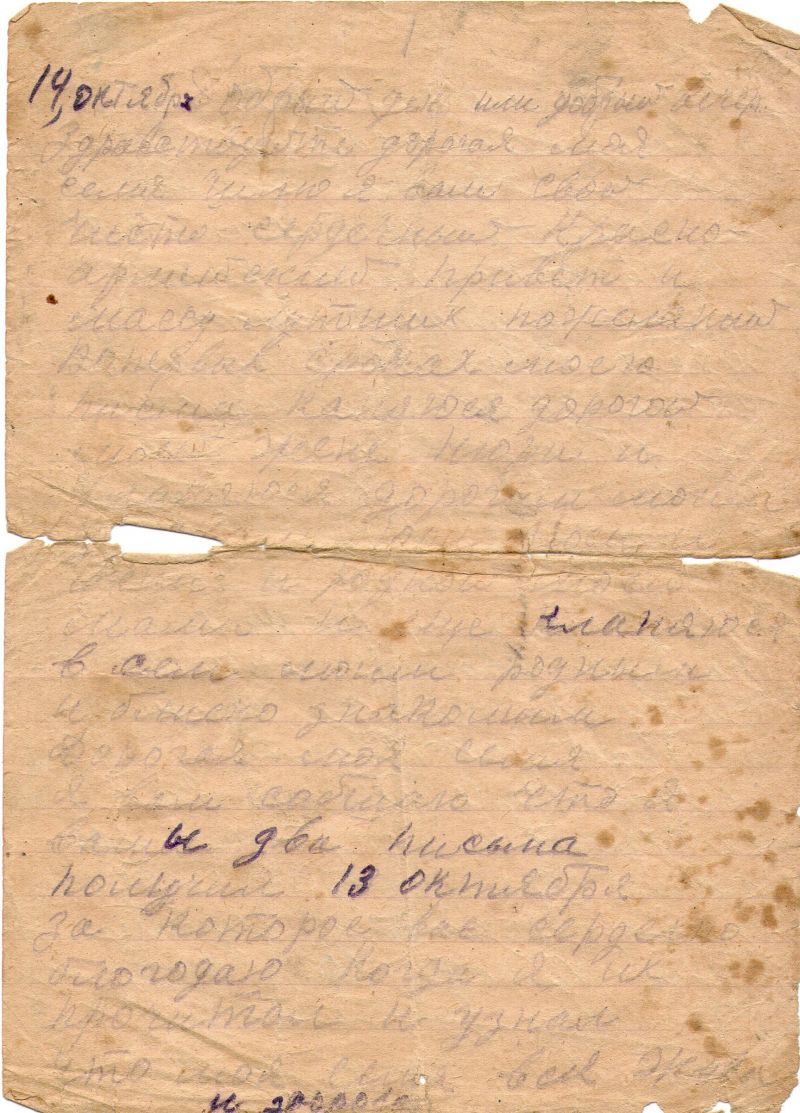 14, октября Добрый ден или добрый вечер.
Здравствуйте дорогая моя
семя шлю я вам свой
чисто сердечный красно-
армейский привет и
массу лутших пожеланий
Вопервых строках моего
писма каняюся дорогой
моей жене Нюри и
кланяюся дорогим моим
и родной
мами и еще кланяюся
в сем моим родным
и близко знакомым
Дорогая моя семя
я вам сабщаю что я
ваши два письма
получил 13 октября
за которое вас сердечно
благодаю когда я их
прочитал и узнал
что моя семя вся жива
и здорова